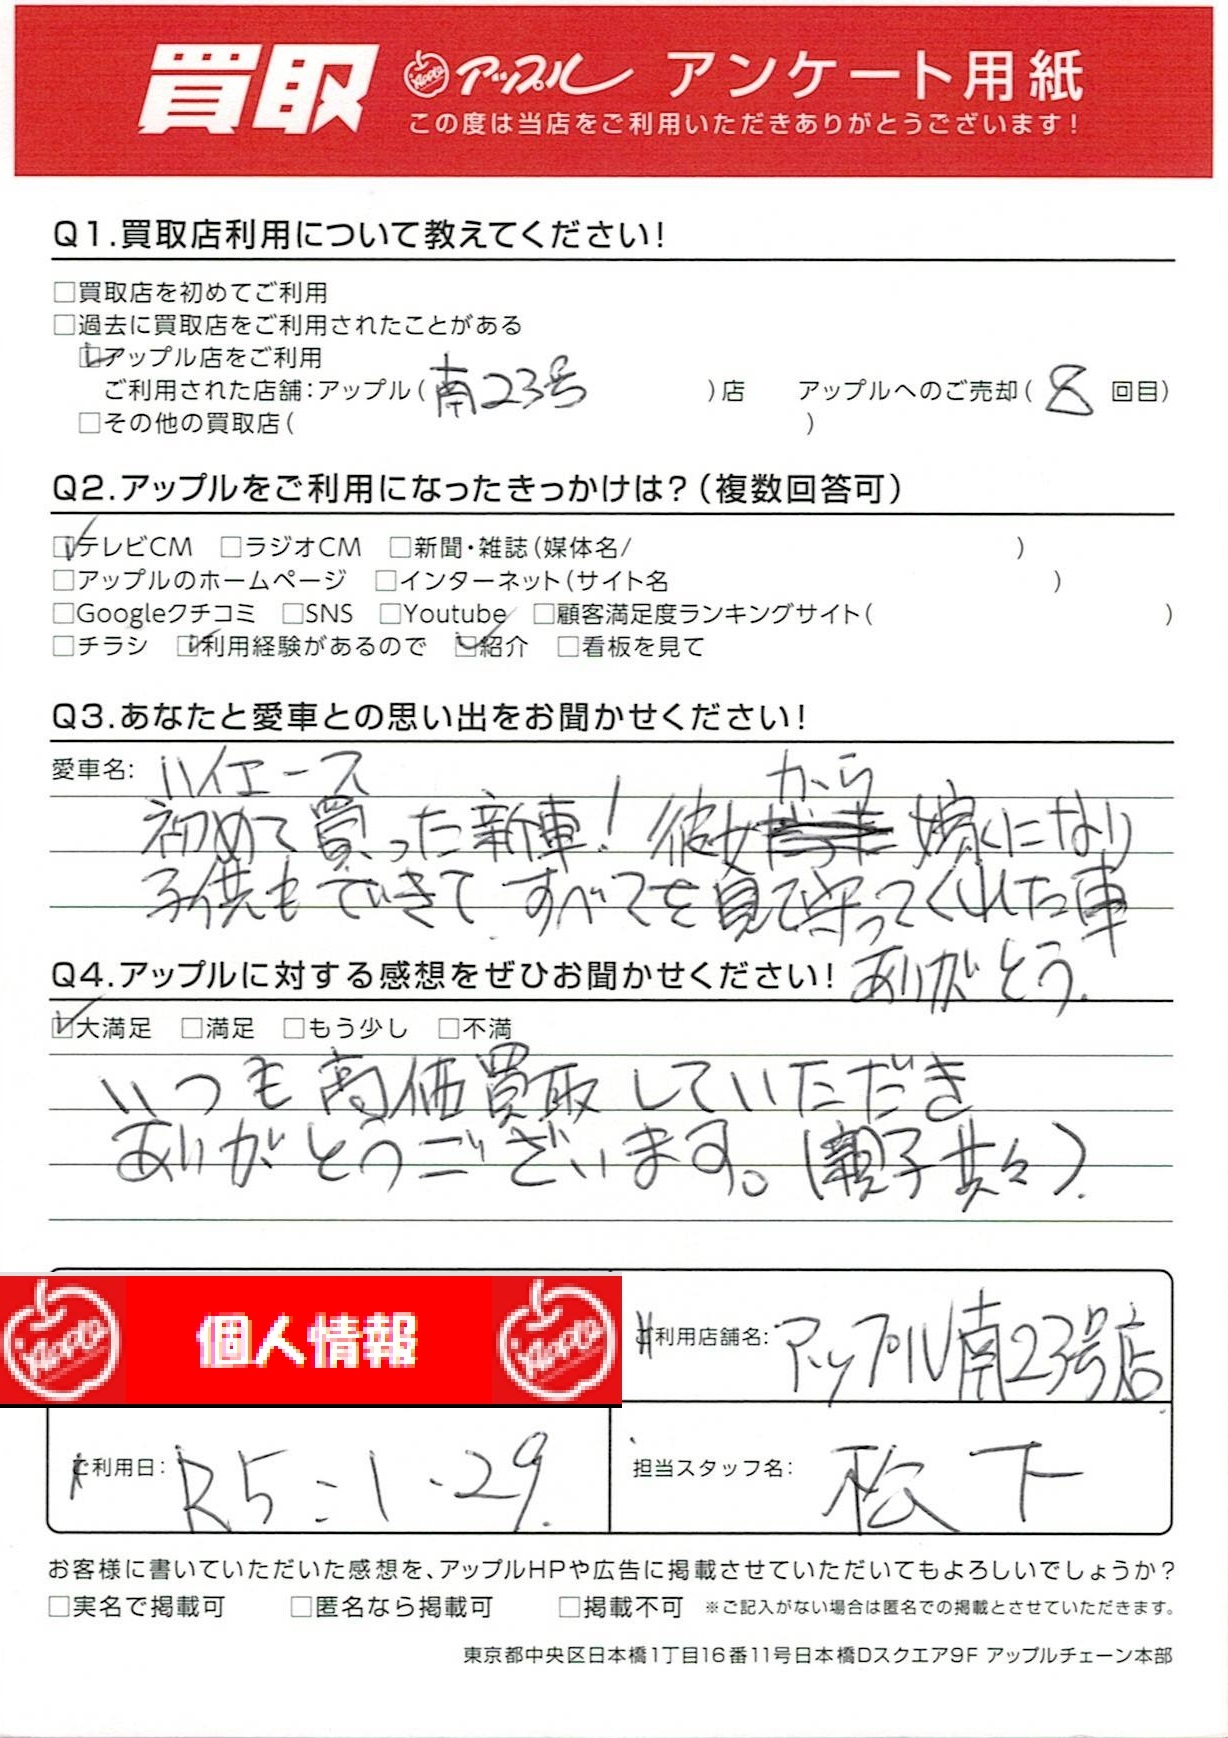 買取 Apple アップル アンケート用紙
この度は当店をご利用いただきありがとうございます!
Q1.買取店利用について教えてください!
□買取店を初めてご利用
□過去に買取店をご利用されたことがある
☑アップル店をご利用
ご利用された店舗:アップル(南23号)店 アップルへのご売却(8回目)
□その他の買取店( )
Q2.アップルをご利用になったきっかけは?(複数回答可)
☑テレビCM □ラジオCM □新聞・雑誌(媒体名/ )
□アップルのホームページ □インターネット(サイト名 )
□Googleクチコミ □SNS □Youtube □顧客満足度ランキングサイト( )
□チラシ ☑利用経験があるので ☑紹介 □看板を見て
Q3.あなたと愛車との思い出をお聞かせください!
愛車名: ハイエース
初めて買った新車! 彼女から嫁になり
子供もできて すべてを見て守ってくれた車
ありがとう.
Q4.アップルに対する感想をぜひお聞かせください!
☑大満足 □満足 □もう少し □不満
いつも高価買取していただき
ありがとうございます。(親子共々).
Apple 個人情報 Apple
ご利用店舗名: アップル南23号店
ご利用日: R5:1.29.
担当スタッフ名: 松下
お客様に書いていただいた感想を、アップルHPや広告に掲載させていただいてもよろしいでしょうか?
□実名で掲載可 □匿名なら掲載可 □掲載不可 ※ご記入がない場合は匿名での掲載とさせていただきます。
東京都中央区日本橋1丁目16番11号日本橋Dスクエア9F アップルチェーン本部